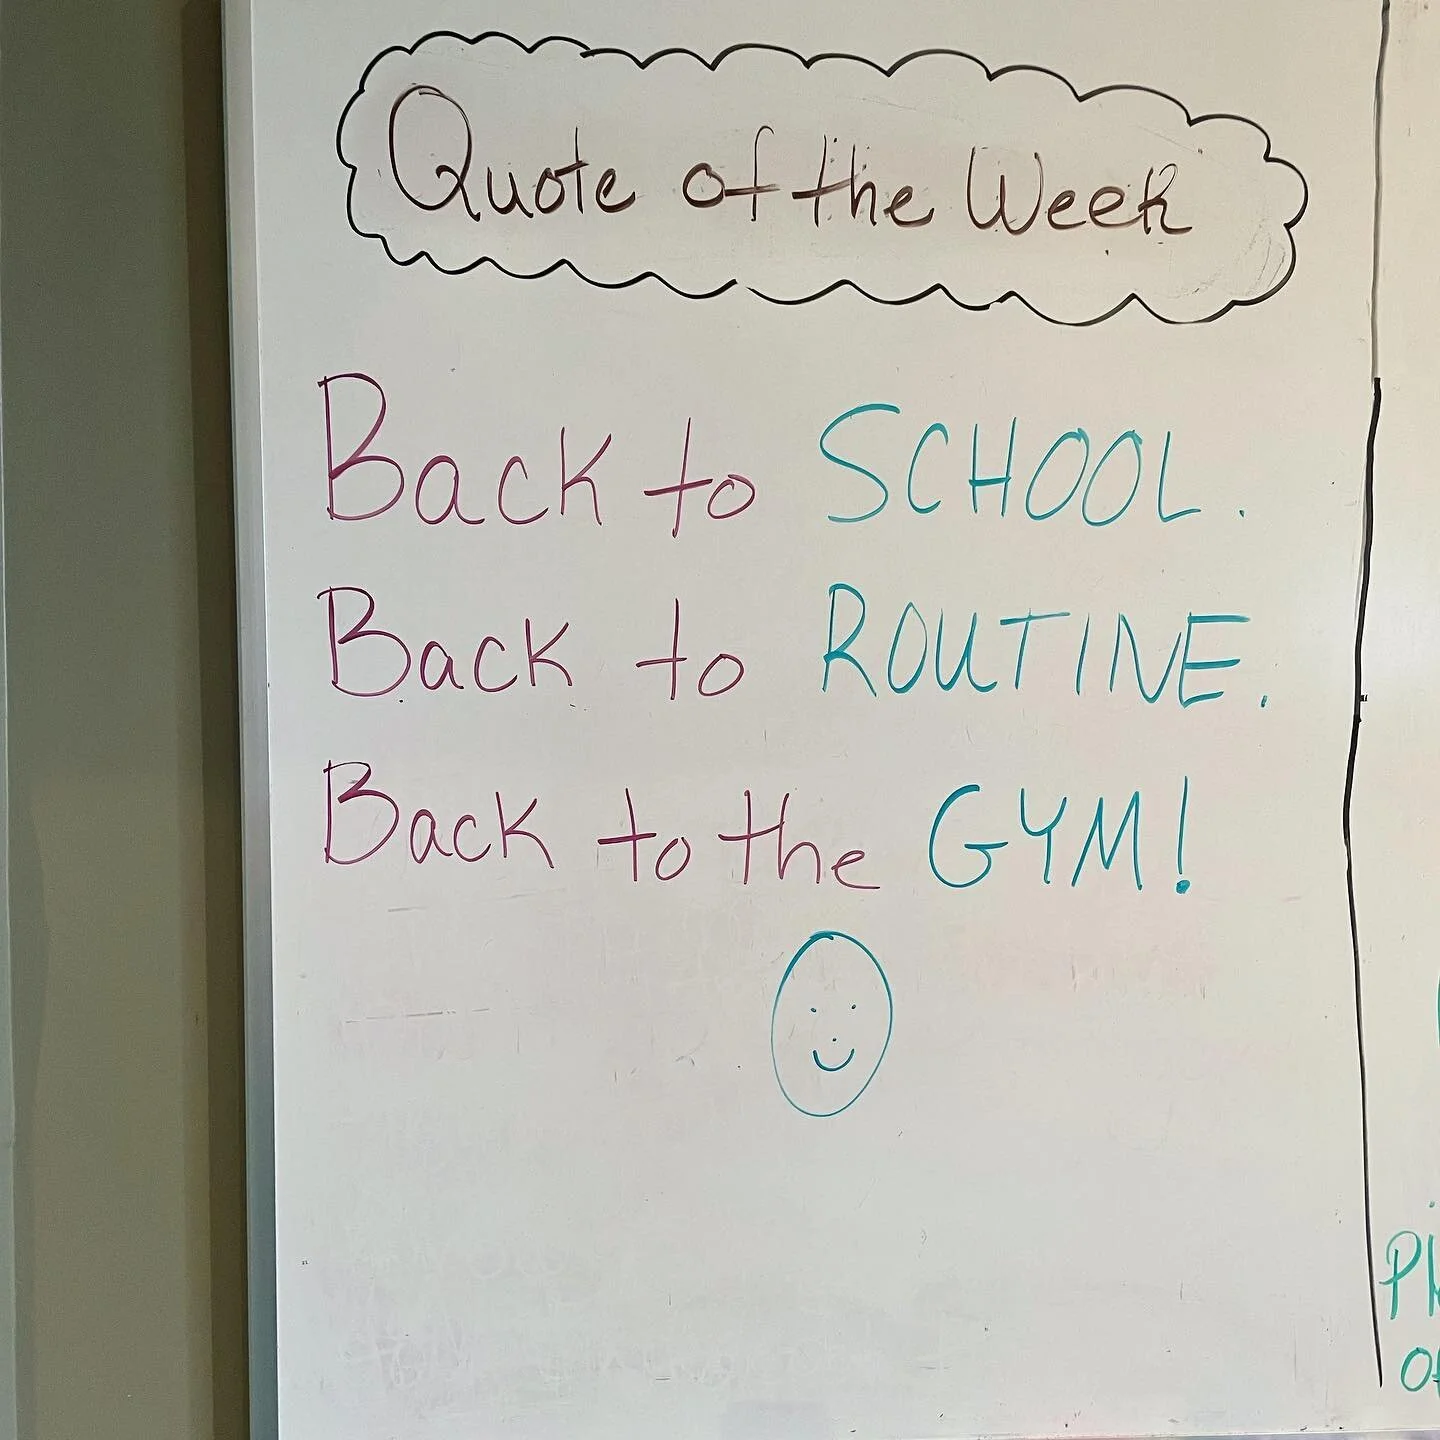 Quote of the Week
Back to SCHOOL.
Back to ROUTINE.
Back to the GYM!